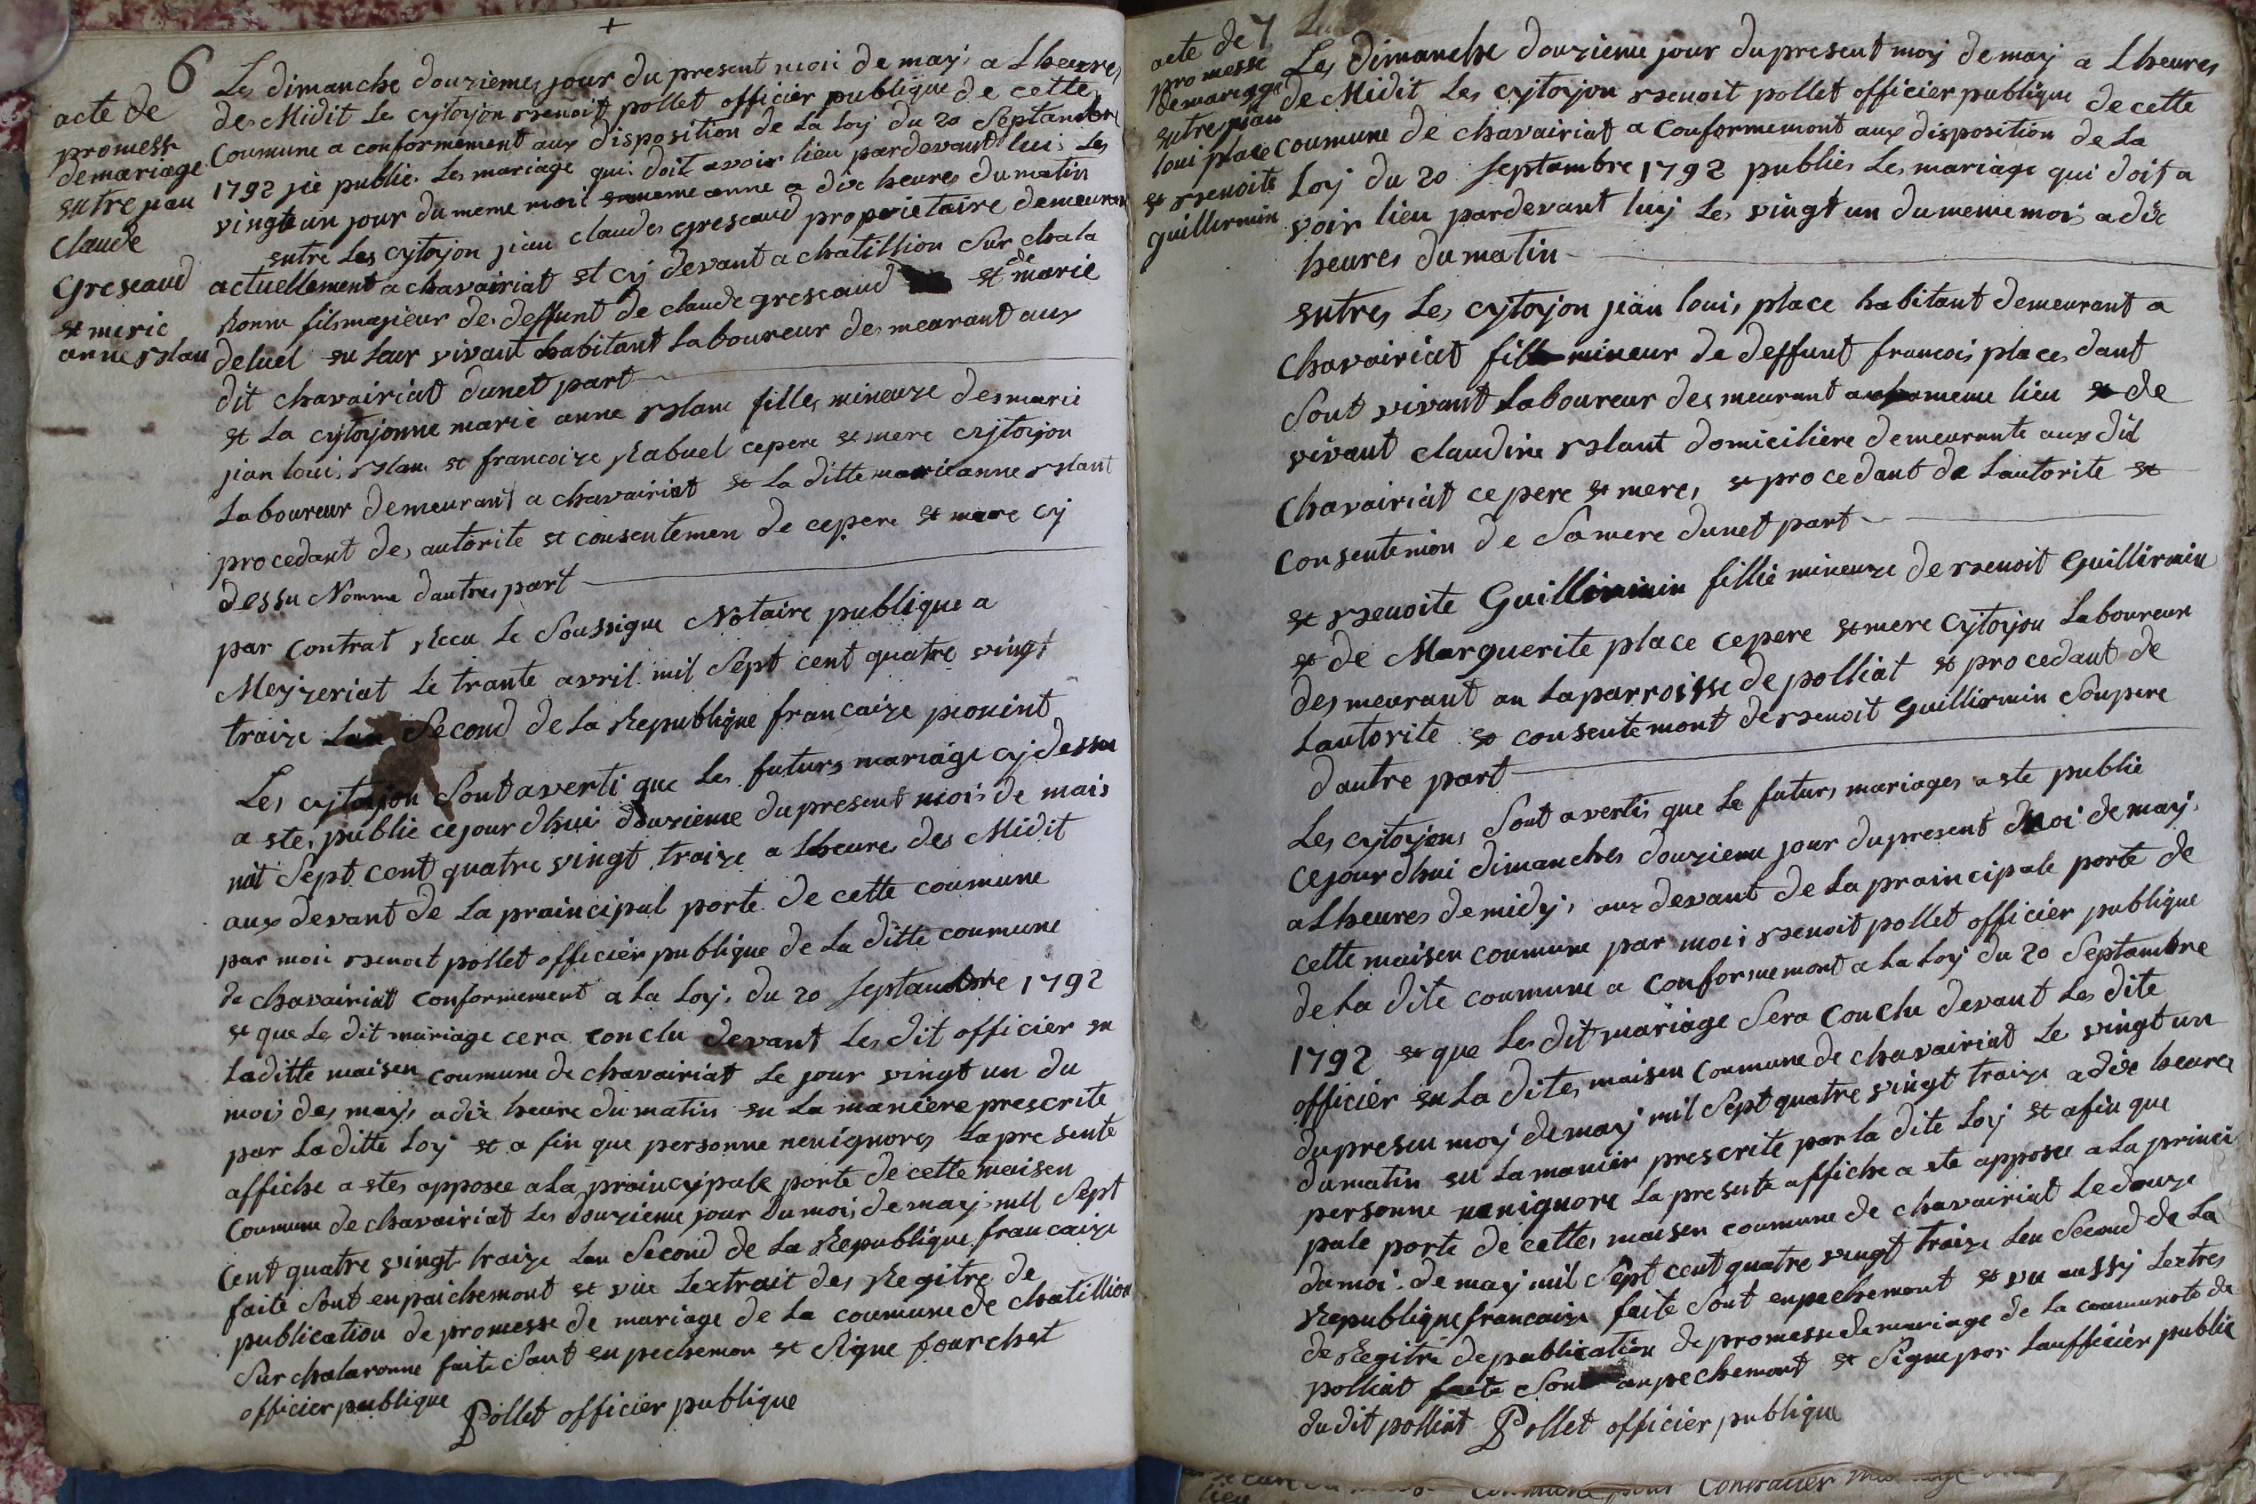 6
acte de
promesse
de mariage
entre jean
Claude
Greseaud
et merie
anne Blan
Le dimanche douzieme jour du present moii de mayi a Lheures
de Midit Le cytoyon Benoit pollet officier publique de cette
Coumune a conformement aux disposition de La Loy du 20 Septambre
1792 jié publie Les mariage qui doit avoir lieu pardevant lui Les
vingt un jour du meme moii en meme anne a dix heures du matin
entre Les cytoyon jian claudes Greseaud proprietaire demeuran
actuellement a chavairiat et cy devant a chatillion Sur chala
Ronne fils majieur de deffunt de claude greseaud et de marie
deluel en leur vivant habitant Laboureur demeurant aux
dit chavairiat dunet part
et La cytoyonne marie anne Blanc filles mineure demarie
jian loui Blan et francoize Rabuel cepere et mere cytoyon
Laboureur demeurant a chavairiat et La ditte marieanne Blant
procedant de autorite et consentemen de cepere et mere cy
dessu Nomme dautres part
par contrat Recu Le Soussigne Notaire publique a
Meyzeriat Le trante avril mil Sept cent quatre vingt
traize Lan Second de La Republique francaize
Les cytoyon Sont averti que Les futurs mariage cy dessu
a ste publie cejourdhui douzieme du present mois de mais
mil Sept cent quatre vingt traize a Lheure des Midit
aux devant de La praincipal porte de cette coumune
par moii Benoit pollet officier publique de La ditte coumune
de chavairiat conformement a La Loy du 20 Septambre 1792
et que Le dit mariage cera conclu devant Les dit officier en
Laditte maisen coumune de chavairiat Le jour vingt un du
mois de may a dix heure du matin en La maniere prescrite
par Laditte Loy et a fin que personne nenignores La presente
affiche a stes apposee a La praincipale porte de cette maisen
Coumune de chavairiat Les douzieme jour du moi de may mil Sept
Cent quatre vingt traize Lan Second de La Republique francaize
faite Sont enpaichemont et vue Lextrait des Regitre de
publication de promesse de mariage de La coumune de chatillion
Sur chalaronne faite Sant enpechemon et Signe fourchet
officier publique
Pollet officier publique
7
acte de
promesse
de mariage
entre jean
loui place
et Benoite
Guillermin
Les dimanche douzieme jour du present moy de may a Lheures
de Midit Les cytoyon Benoit pollet officier publique de cette
coumune de chavairiat a conformemont aux disposition de La
Loy du 20 Septambre 1792 publies Les mariage qui doit a
voir lieu pardevant luy Les vingt un du meme mois a dix
heures du matin
entres Les cytoyon jian loui place habitant demeurant a
Chavairiat fils mineur de deffunt francois places dant
Sout vivant Laboureur demeurant au meme lieu et de
vivant claudine Blant domiciliere demeurante aux dit
Chavairiat cepere et mere, et procedant de Lautorite et
consentemon de Samere dunet part
et Benoite Guillirmin fillie mineure de Benoit Guillirmin
et de Marguerite place cepere et mere cytoyon Laboureur
demeurant an La parroisse de polliat et procedant de
Lautorite et consentemont de Benoit Guillirmin Soupere
dautre part
Les cytoyons Sont avertis que Le futurs mariages a ste publie
Cejourdhui dimanches douzieme jour du present moi de may
a Lheures de midy, aux devant de La praincipale porte de
cette maisen coumune par moii Benoit pollet officier publique
de La dite coumune a Conformemont a La Loy du 20 Septambre
1792 et que Les dit mariage Sera conclu devant Les dite
officier en La dites maisen coumune de chavairiat Le vingt un
du presen moy de may mil Sept quatre vingt traize a dix heures
du matin en La manier prescrite par la dite Loy et afin que
personne nenignore La presente affiche a ste apposee a La princi
pale porte de cettes maisen coumune de chavairiat Le douze
du moi de may mil Sept cent quatre vingt traize Lan Second de La
Republique francaise faite Sont enpechemont et vu aussy Lextres
de Regitre de publication de promesse de mariage de La coumunote de
polliat faite Sont anpechemont et Signe par Lauffieier publie
du dit polliat Pollet officier publique